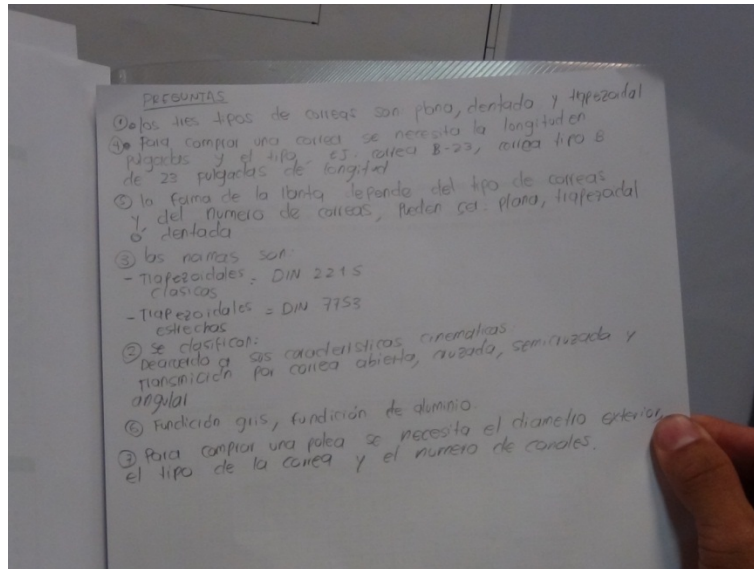 PREGUNTAS
① los tres tipos de correas son: plana, dentada y trapezoidal
④ Para comprar una correa se necesita la longitud en
pulgadas y el tipo, ej. correa B-23, correa tipo B
de 23 pulgadas de longitud
⑤ la forma de la llanta depende del tipo de correas
y del numero de correas, pueden ser: plana, trapezoidal
o dentada
③ las normas son:
- Trapezoidales = DIN 2215
clasicas
- Trapezoidales = DIN 7753
estrechas
② se clasifican:
Deacuerdo a sus caracteristicas cinematicas:
transmición por correa abierta, cruzada, semicruzada y
angular
⑥ Fundición gris, fundición de aluminio.
⑦ Para comprar una polea se necesita el diametro exterior,
el tipo de la correa y el numero de canales.